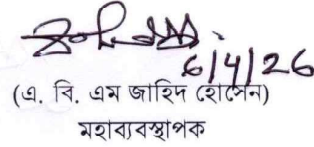 6/4/26
(এ. বি. এম জাহিদ হোসেন)
মহাব্যবস্থাপক